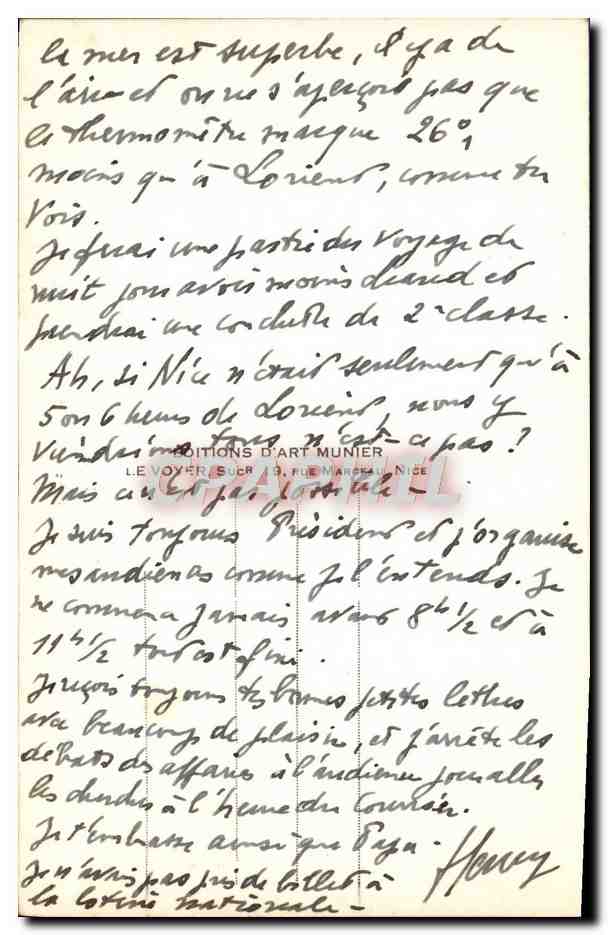 la mer est superbe, il y a de
l'air et on ne s'aperçoit pas que
le thermomètre marque 26°,
moins qu'à Lorient, comme tu
vois.
Je ferai une partie du voyage de
nuit pour avoir moins chaud et
prendrai une couchette de 2e classe.
Ah, si Nice n'était seulement qu'à
5 ou 6 heures de Lorient, nous y
viendrions tous n'est-ce pas ?
EDITIONS D'ART MUNIER
LE VOYER, Sucr 49, RUE MARCEAU, NICE
Mais ce n'est pas possible -
Je suis toujours Président et j'organise
mes audiences comme je l'entends. Je
ne commence jamais avant 8h 1/2 et à
11h 1/2 tout est fini.
Je reçois toujours tes bonnes petites lettres
avec beaucoup de plaisir, et j'arrête les
débats des affaires à l'audience pour aller
les chercher à l'heure du courrier.
Je t'embrasse ainsi que Papa -
Henry
Je n'avais pas pris de billet à
la loterie nationale -